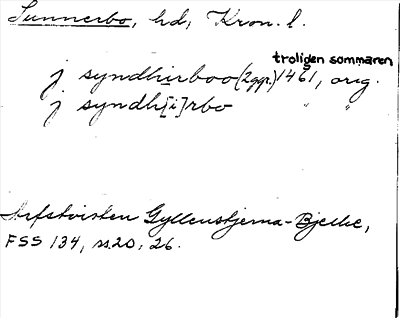 Sunnerbo, hd, Kron. l.
troligen sommaren
j syndhirboo (2ggr.) 1461, orig.
j syndh[i]rbo " "
Arfstvisten Gyllenstjerna-Bjelke,
FSS 134, ss. 20, 26.